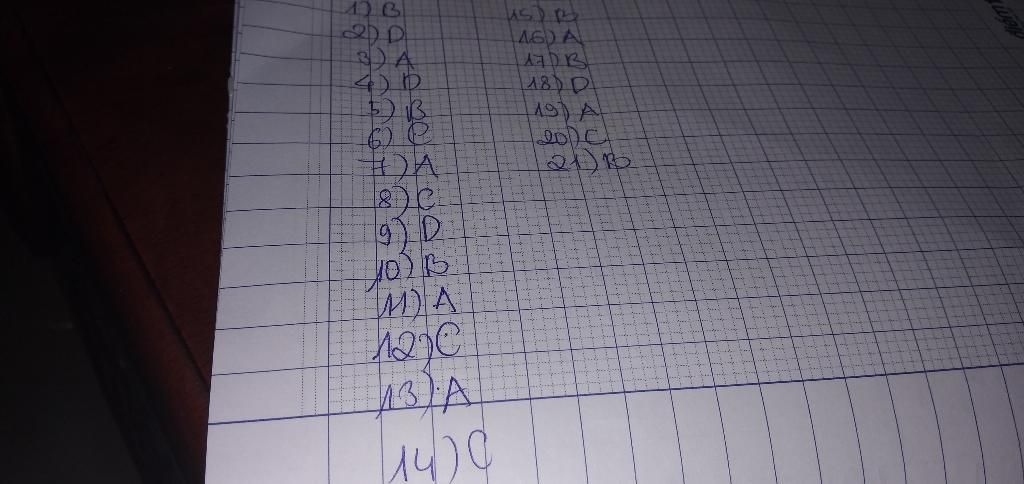 1) B
2) D
3) A
4) D
5) B
6) C
7) A
8) C
9) D
10) B
11) A
12) C
13) A
14) C
15) B
16) A
17) B
18) D
19) A
20) C
21) B